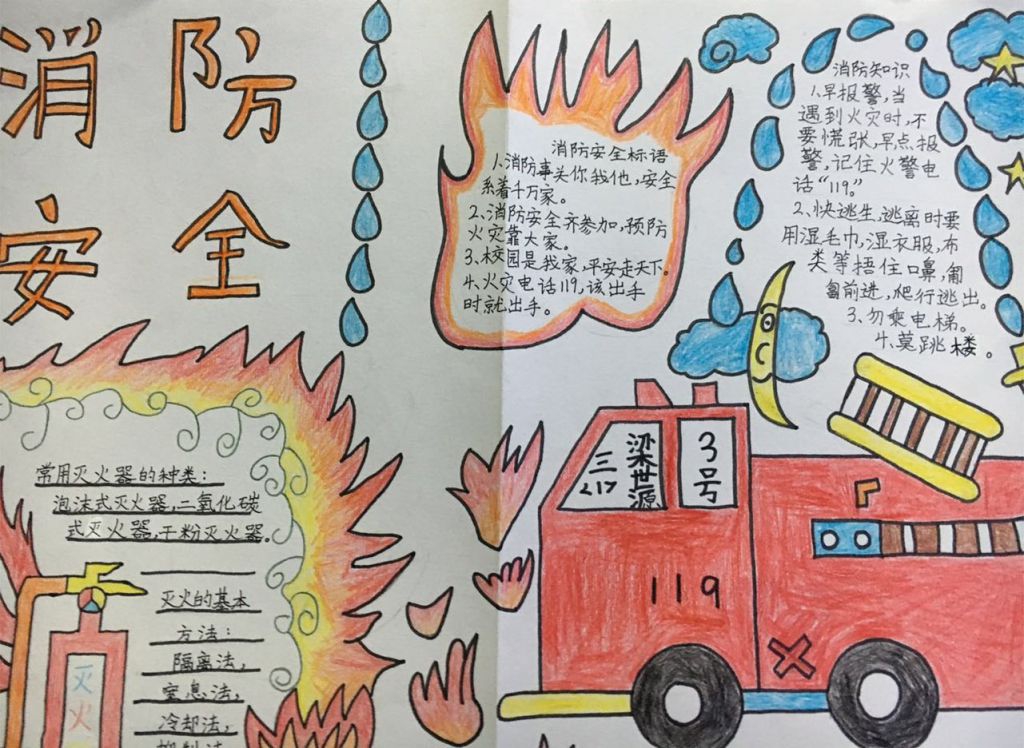 消防
安全
消防安全标语
1、消防事关你我他,安全
系着千万家。
2、消防安全齐参加,预防
火灾靠大家。
3、校园是我家,平安走天下。
4、火灾电话119,该出手
时就出手。
消防知识
1、早报警,当
遇到火灾时,不
要慌张,早点报
警,记住火警电
话“119”。
2、快逃生,逃离时要
用湿毛巾,湿衣服,布
类等捂住口鼻,匍
匐前进,爬行逃出。
3、勿乘电梯。
4、莫跳楼。
常用灭火器的种类:
泡沫式灭火器,二氧化碳
式灭火器,干粉灭火器。
灭火的基本
方法:
隔离法,
窒息法,
冷却法,
灭火
三<1>
梁世源
3号
119